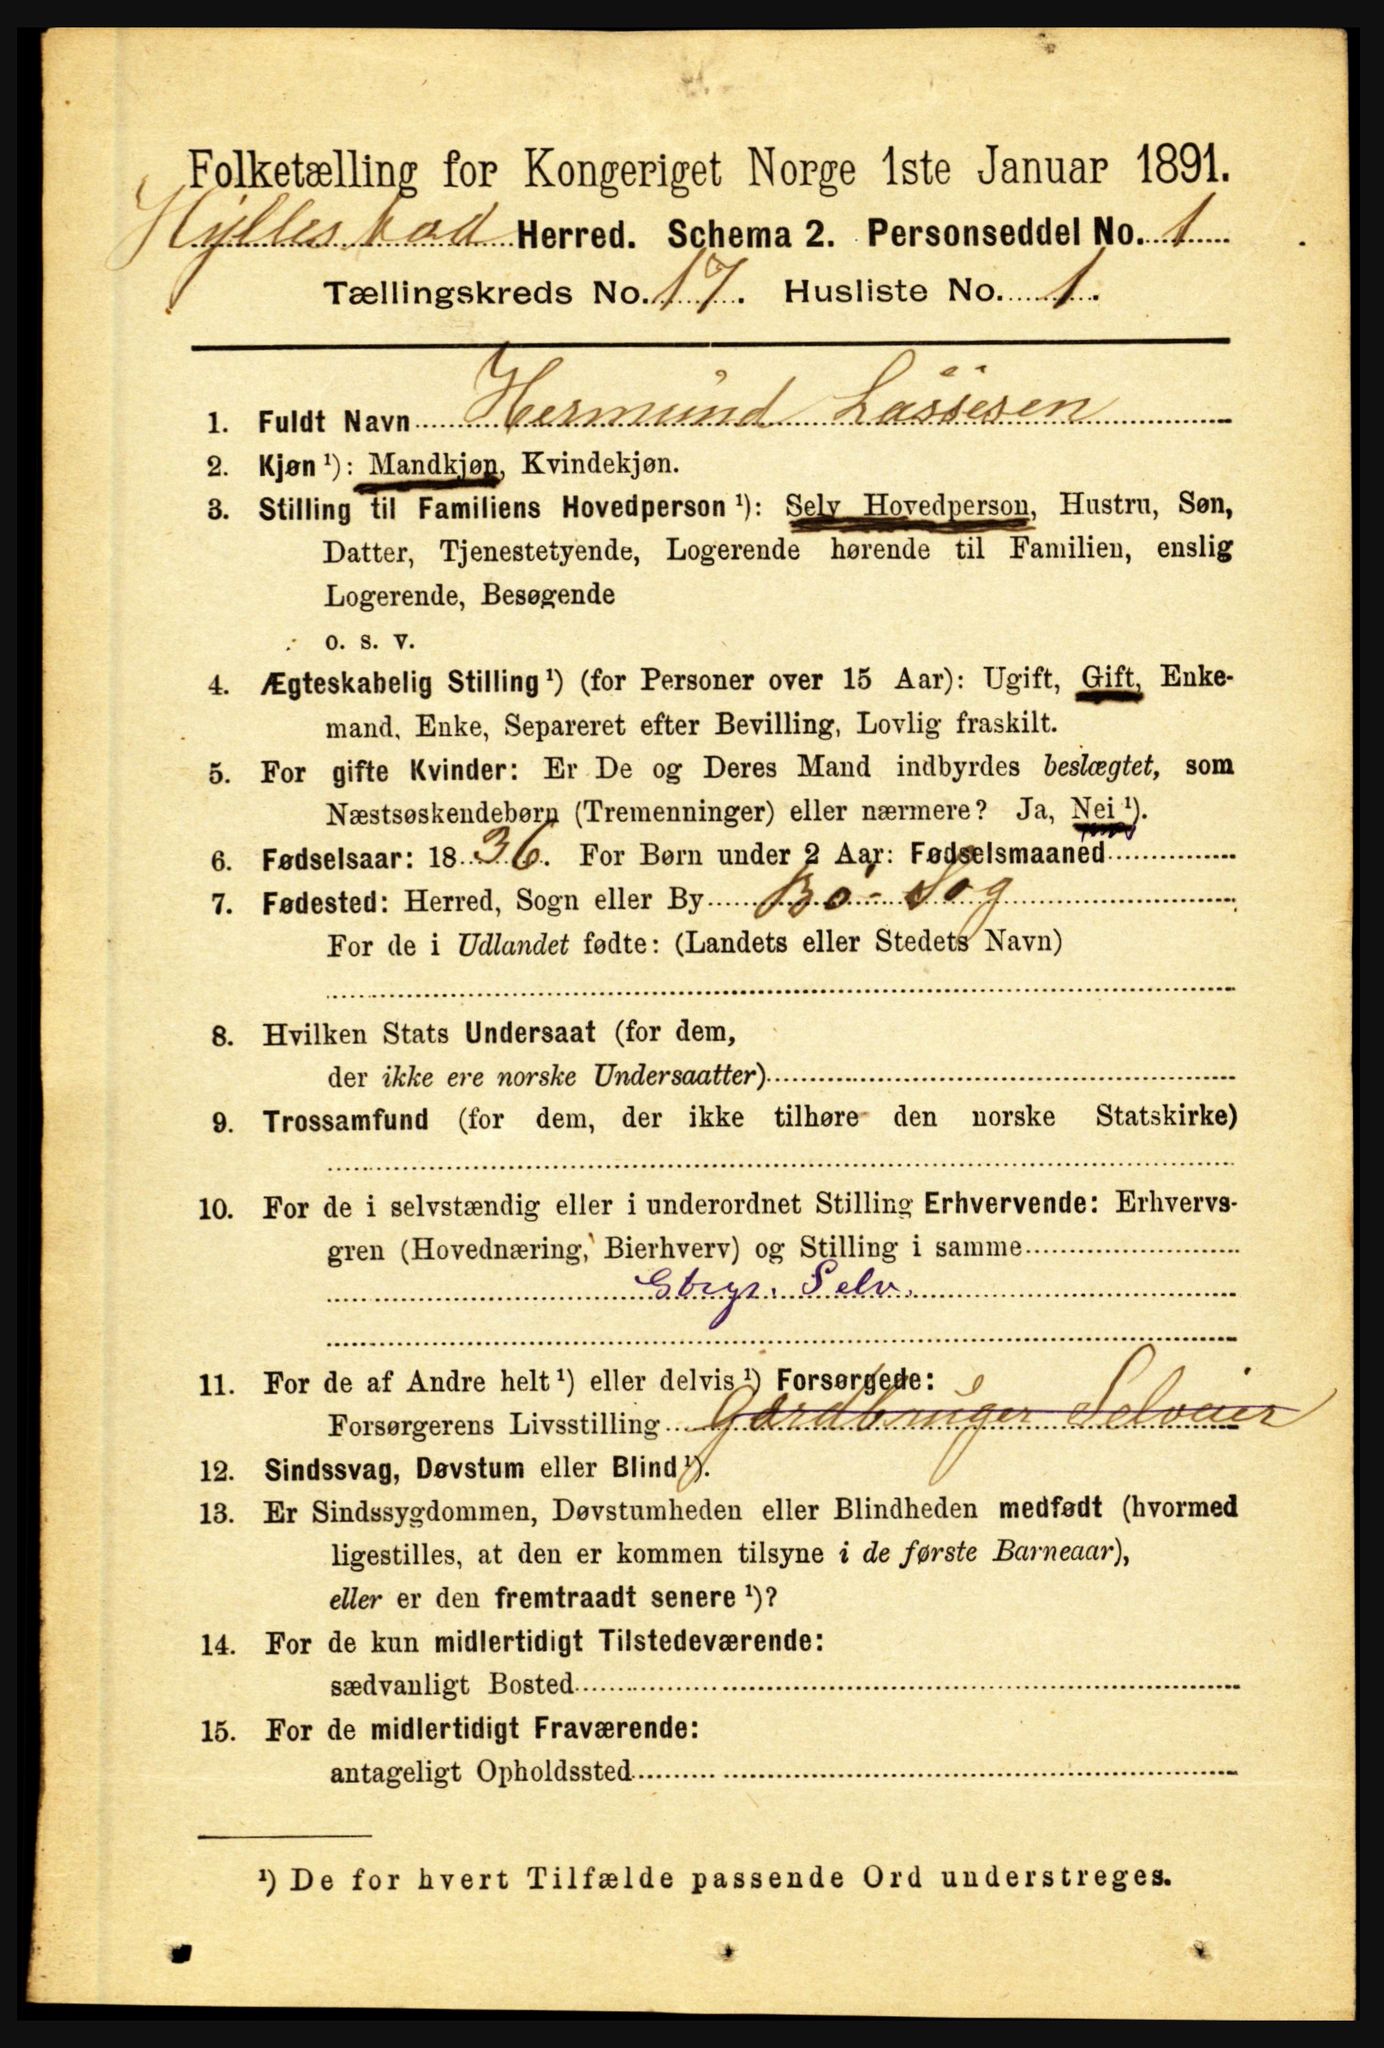 Folketælling for Kongeriget Norge 1ste Januar 1891.
Hyllestad Herred. Schema 2. Personseddel No. 1
Tællingskreds No. 17. Husliste No. 1.
1. Fuldt Navn Hermund Lassesen
2. Kjøn ¹): Mandkjøn, Kvindekjøn.
3. Stilling til Familiens Hovedperson ¹): Selv Hovedperson, Hustru, Søn,
Datter, Tjenestetyende, Logerende hørende til Familien, enslig
Logerende, Besøgende
o. s. v.
4. Ægteskabelig Stilling ¹) (for Personer over 15 Aar): Ugift, Gift, Enke-
mand, Enke, Separeret efter Bevilling, Lovlig fraskilt.
5. For gifte Kvinder: Er De og Deres Mand indbyrdes beslægtet, som
Næstsøskendebørn (Tremenninger) eller nærmere? Ja, Nei ¹).
6. Fødselsaar: 1836. For Børn under 2 Aar: Fødselsmaaned
7. Fødested: Herred, Sogn eller By Bø-Sog
For de i Udlandet fødte: (Landets eller Stedets Navn)
8. Hvilken Stats Undersaat (for dem,
der ikke ere norske Undersaatter)
9. Trossamfund (for dem, der ikke tilhøre den norske Statskirke)
10. For de i selvstændig eller i underordnet Stilling Erhvervende: Erhvervs-
gren (Hovednæring, Bierhverv) og Stilling i samme
Gbrgr. Selv.
11. For de af Andre helt ¹) eller delvis ¹) Forsørgede:
Forsørgerens Livsstilling Gardbruger Selveier
12. Sindssvag, Døvstum eller Blind ¹).
13. Er Sindssygdommen, Døvstumheden eller Blindheden medfødt (hvormed
ligestilles, at den er kommen tilsyne i de første Barneaar),
eller er den fremtraadt senere ¹)?
14. For de kun midlertidigt Tilstedeværende:
sædvanligt Bosted
15. For de midlertidigt Fraværende:
antageligt Opholdssted
¹) De for hvert Tilfælde passende Ord understreges.